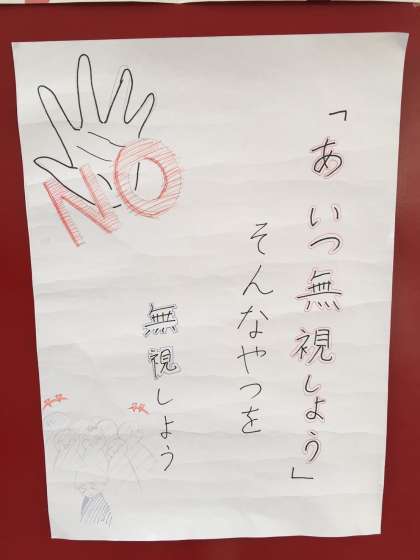 「あいつ無視しよう」
そんなやつを
無視しよう
NO